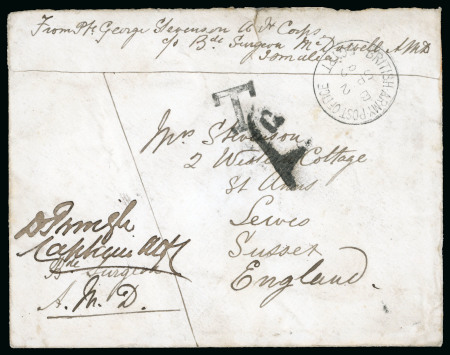 From Pte George Stevenson A H Corps
c/o Bde Surgeon McDowell A.M.D
Ismailia
BRITISH ARMY POST OFFICE
B
SP 2
T
Mrs Stevenson
2 Western Cottage
St Anns
Lewes
Sussex
England.
Bde Surgeon
A.M.D.